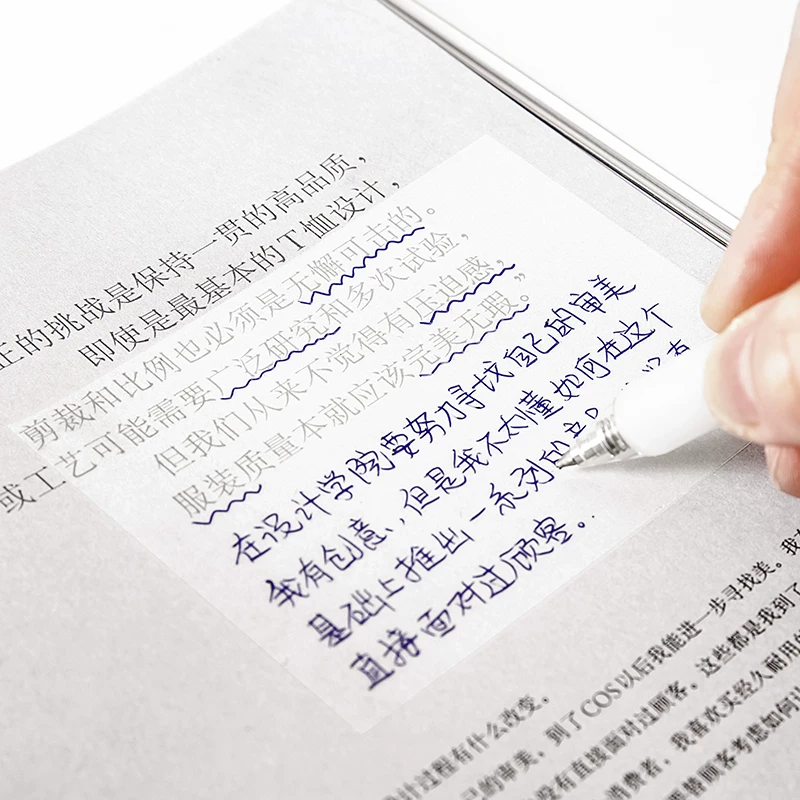 正的挑战是保持一贯的高品质，
即使是最基本的T恤设计，
剪裁和比例也必须是无懈可击的。
或工艺可能需要广泛研究和多次试验，
但我们从来不觉得有压迫感，
服装质量本就应该完美无瑕。
在设计学院要努力寻找自己的审美
我有创意，但是我不太懂如何在这个
基础上推出一系列
直接面对过顾客。
计过程有什么改变。
己的审美，到了COS以后我能进一步寻找美。我
没有直接面对过顾客，这些都是我到了
消费者，我喜欢买经久耐用的
顾客考虑如何